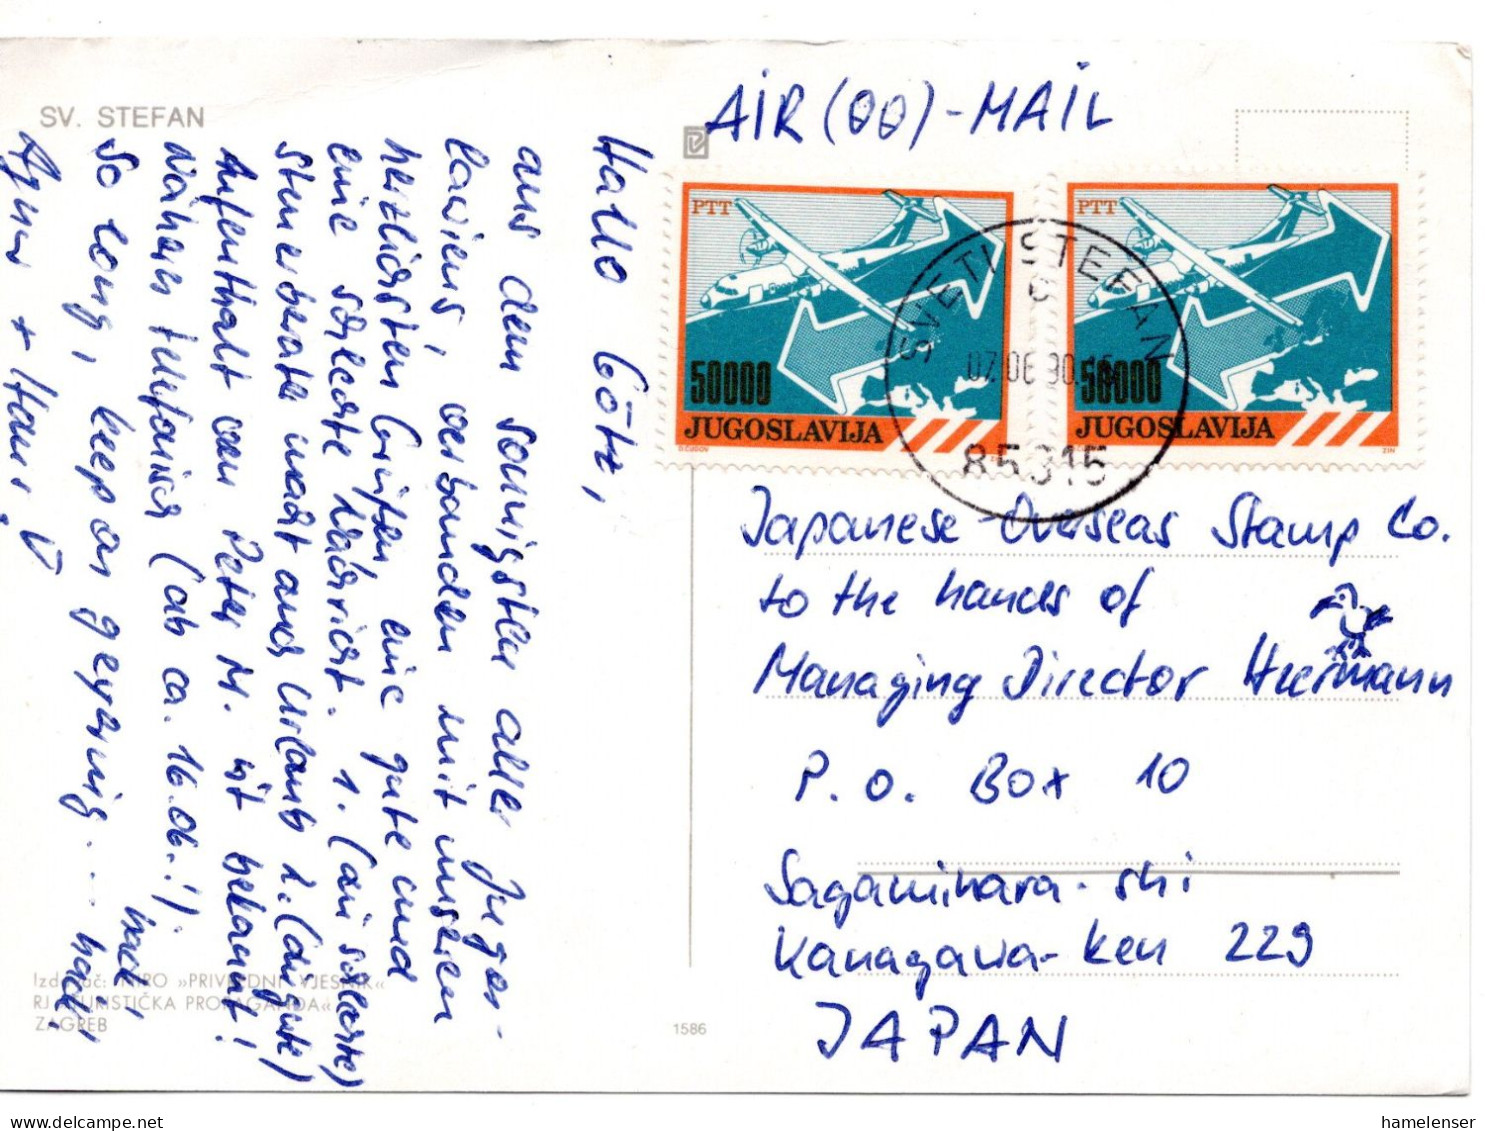 SV. STEFAN
AIR (00) - MAIL
Hallo Götz,
aus dem sonnigsten aller Jugos-
laviens, verbunden mit unseren
herzlichsten Grüßen, eine gute und
eine schlechte Nachricht. 1. (die schlechte)
Steuerberater macht auch Urlaub 2. (die gute)
Aufenthalt von Peter M. ist bekannt!
näheres telefonisch (ab ca. 16.06.!)
So long, keep on geyering... hadi,
hadi,
+ Hans.
PTT
50000
JUGOSLAVIJA
D. ČUDOV
PTT
50000
JUGOSLAVIJA
ZIN
SVETI STEFAN
c
07.06.90.15
85315
Japanese-Overseas Stamp Co.
to the hands of
Managing Director Heermann
P.O. Box 10
Sagamihara-shi
Kanagawa-ken 229
JAPAN
Izdavač: NIRO »PRIVREDNI VJESNIK«
RJ »TURISTIČKA PROPAGANDA«
ZAGREB
1586
hamelenser